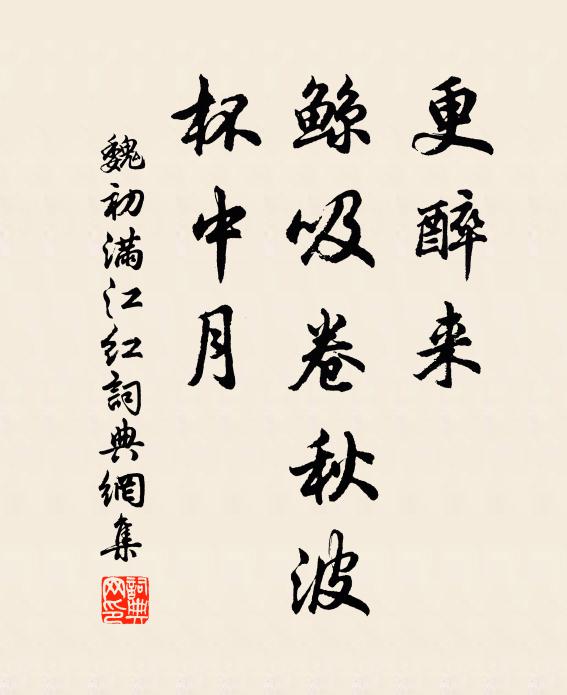 更醉来
鲸吸卷秋波
杯中月
魏初满江红詞典網集
詞典网印